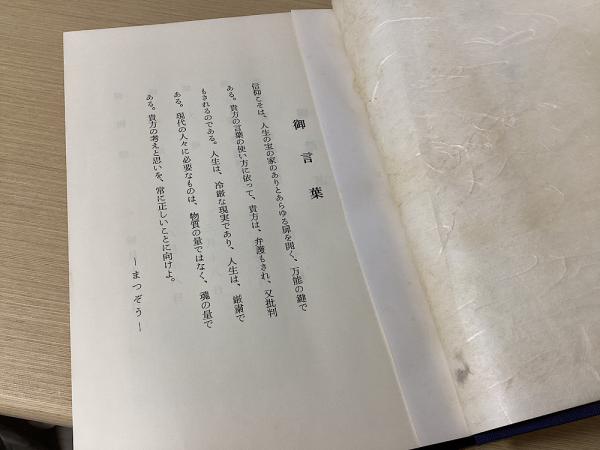 御言葉
信仰こそは、人生の宝の家のありとあらゆる扉を開く、万能の鍵で
ある。貴方の言葉の使い方に依って、貴方は、弁護もされ、又批判
もされるのである。人生は、冷厳な現実であり、人生は、厳粛で
ある。現代の人々に必要なものは、物質の量ではなく、魂の量で
ある。貴方の考えと思いを、常に正しいことに向けよ。
―まつぞう―